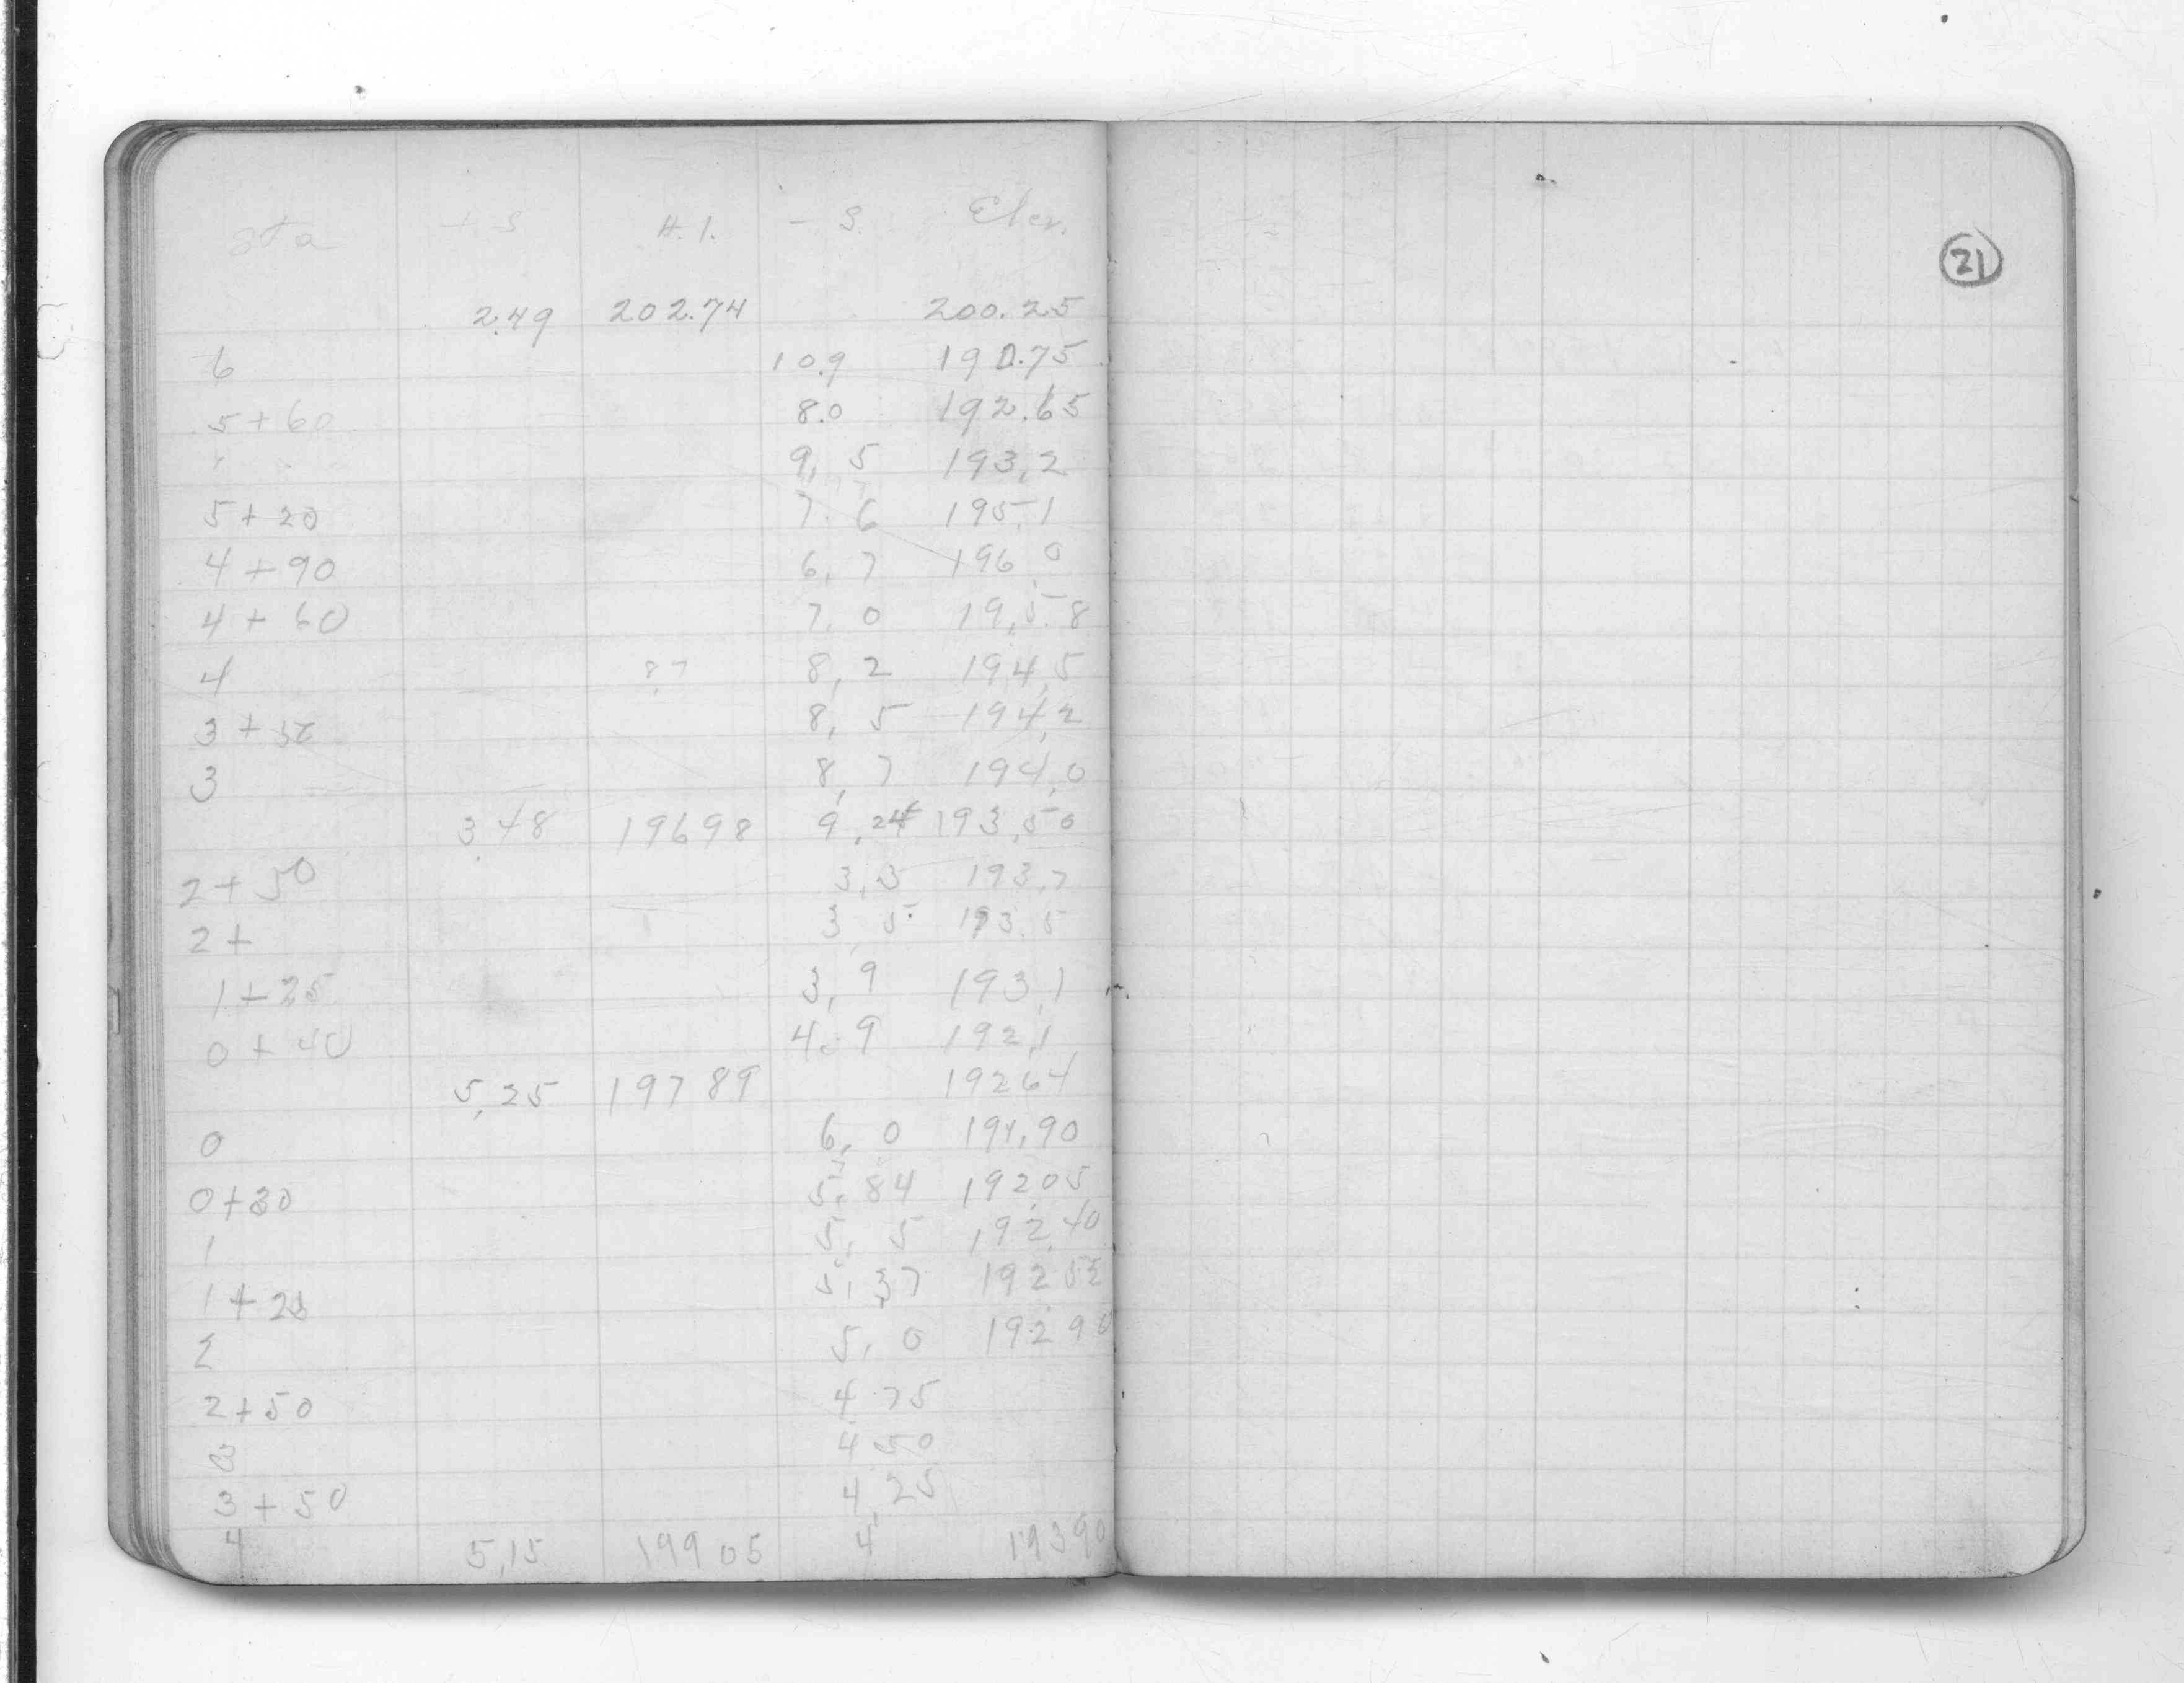 Sta + S H.I. - S. Elev.
21
2.49 202.74 200.25
6 10.9 190.75
5+60 8.0 192.65
9.5 193.2
5+20 7.6 195.1
4+90 6.7 196.0
4+60 7.0 195.8
4 8.7 8.2 194.5
3+ 8.5 194.2
3 8.7 194.0
3.48 196 98 9.24 193.50
2+50 3.3 193.7
2+ 3.5 193.5
1+25 3.9 193.1
0+40 4.9 192.1
5.25 197 89 192 64
0 6.0 191.90
0+30 5.84 192 05
1 5.5 192.40
1+25 5.37 192 52
2 5.0 192 90
2+50 4 75
3 4 50
3+50 4.25
4 5.15 199 05 4 193 90